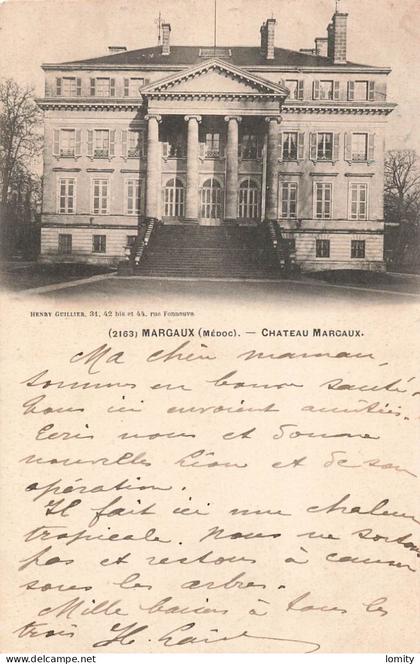 HENRY GUILLIER, 31, 42 bis et 44, rue Fonneuve
(2163) MARGAUX (MÉDOC). — CHATEAU MARGAUX.
Ma chère maman,
sommes en bonne santé.
vous ici envoient amitiés.
Écris nous et donne
nouvelles Léon et de son
opération.
Il fait ici une chaleur
tropicale. Nous ne sortons
pas et restons à causer
sous les arbres.
Mille baisers à tous les
trois H.
lomity.com